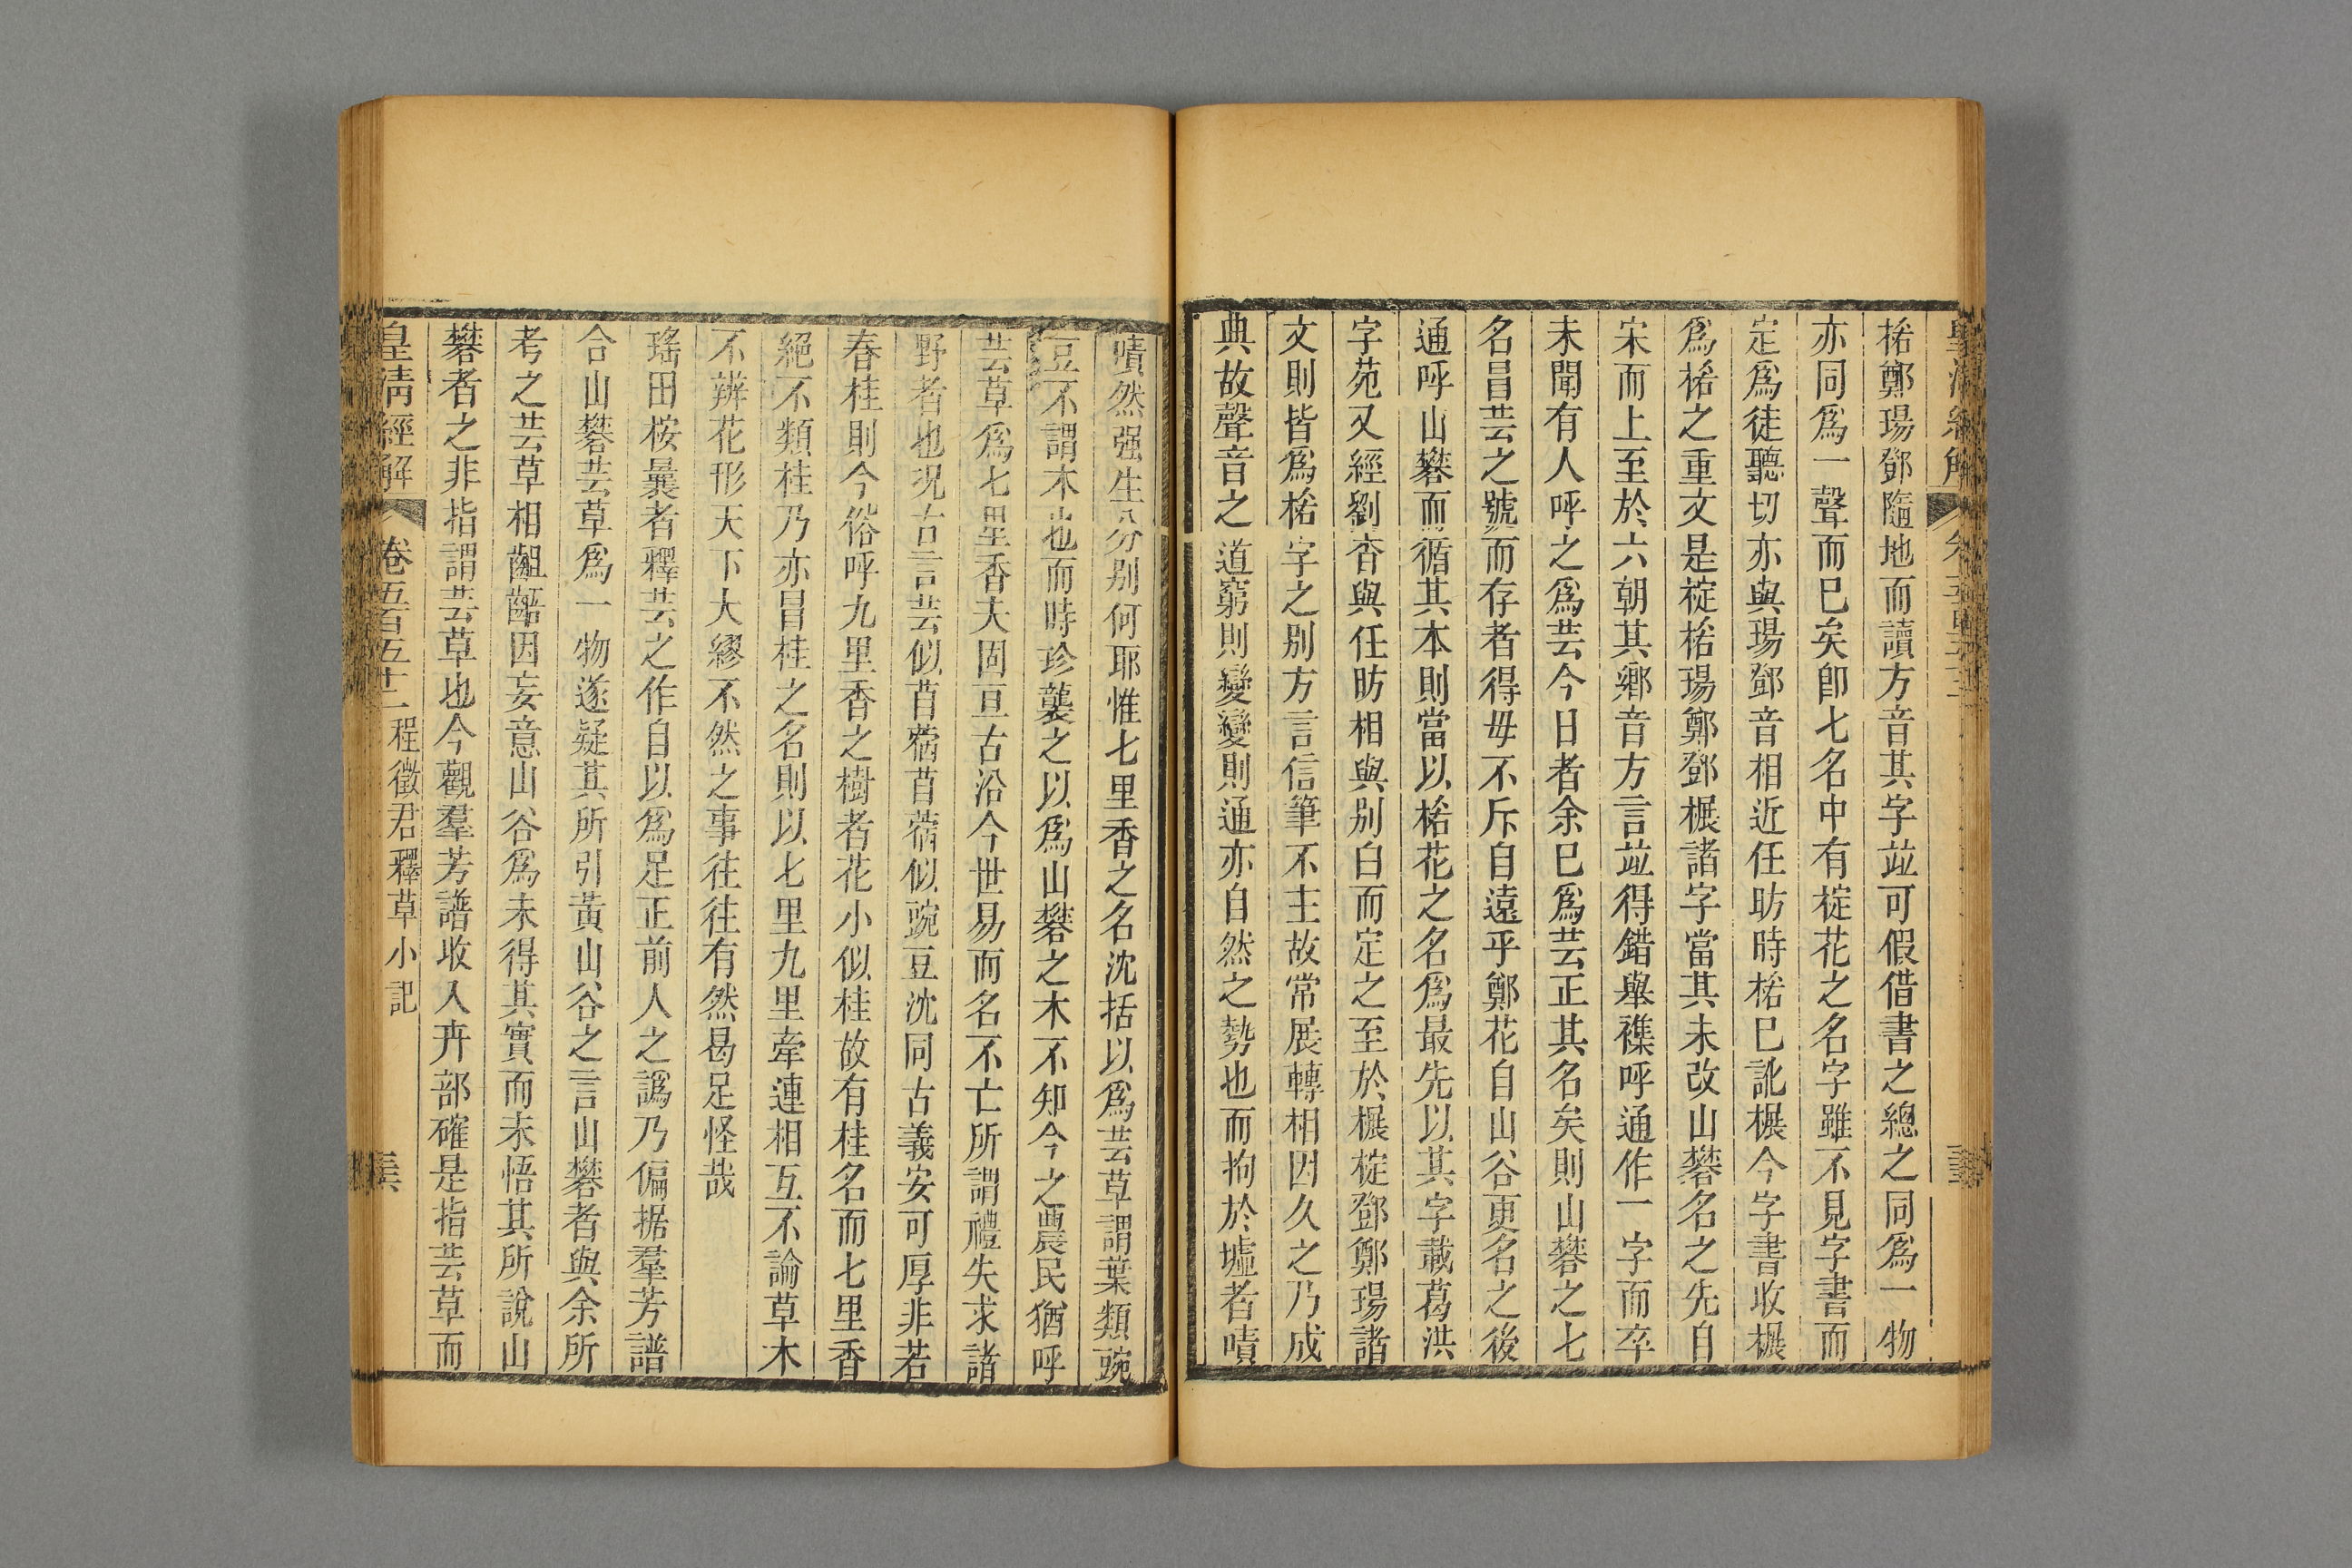 皇清經解
桘鄭瑒鄧隨地而讀方音其字竝可假借書之總之同爲一物
亦同爲一聲而已矣卽七名中有椗花之名字雖不見字書而
定爲徒聽切亦與瑒鄧音相近任昉時桘已訛榐今字書收榐
爲桘之重文是椗桘瑒鄭鄧榐諸字當其未改山礬名之先自
宋而上至於六朝其鄉音方言竝得錯舉襍呼通作一字而卒
未聞有人呼之爲芸今日者余已爲芸正其名矣則山礬之七
名昌芸之號而存者得毋不斥自遠乎鄭花自山谷更名之後
通呼山礬而循其本則當以桘花之名爲最先以其字載葛洪
字苑又經劉杳與任昉相與别白而定之至於榐椗鄧鄭瑒諸
文則皆爲桘字之别方言信筆不主故常展轉相因久之乃成
典故聲音之道窮則變變則通亦自然之勢也而拘於墟者嘖
嘖然强生分别何耶惟七里香之名沈括以爲芸草謂葉類豌
豆不謂木也而時珍襲之以爲山礬之木不知今之農民猶呼
芸草爲七里香夫固亘古沿今世易而名不亡所謂禮失求諸
野者也況古言芸似苜蓿苜蓿似豌豆沈同古義安可厚非若
春桂則今俗呼九里香之樹者花小似桂故有桂名而七里香
絕不類桂乃亦冒桂之名則以七里九里牽連相互不論草木
不辨花形天下大繆不然之事往往有然曷足怪哉
瑤田桉曩者釋芸之作自以爲足正前人之譌乃偏据羣芳譜
合山礬芸草爲一物遂疑其所引黃山谷之言山礬者與余所
考之芸草相齟齬因妄意山谷爲未得其實而未悟其所說山
礬者之非指謂芸草也今觀羣芳譜收入卉部確是指芸草而
皇清經解 卷五百五十二 程徵君釋草小記